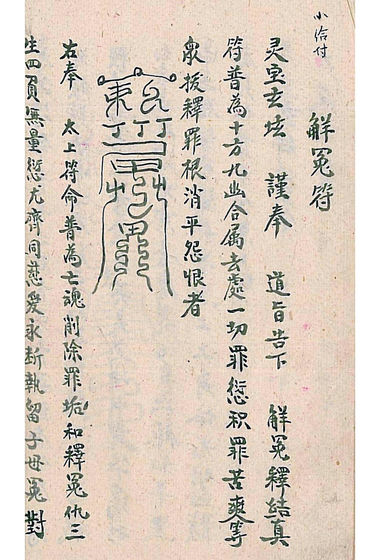 小洽付
解冤符
灵宝玄坛 谨奉 道旨告下 解冤釋結真
符普為十方九幽合属去處一切罪愆积罪苦爽等
眾拔釋罪根消平怨恨者
右奉 太上符命普為亡魂削除罪垢和釋冤仇三
生四負無量愆尤齊同慈爱永断執留子母冤對